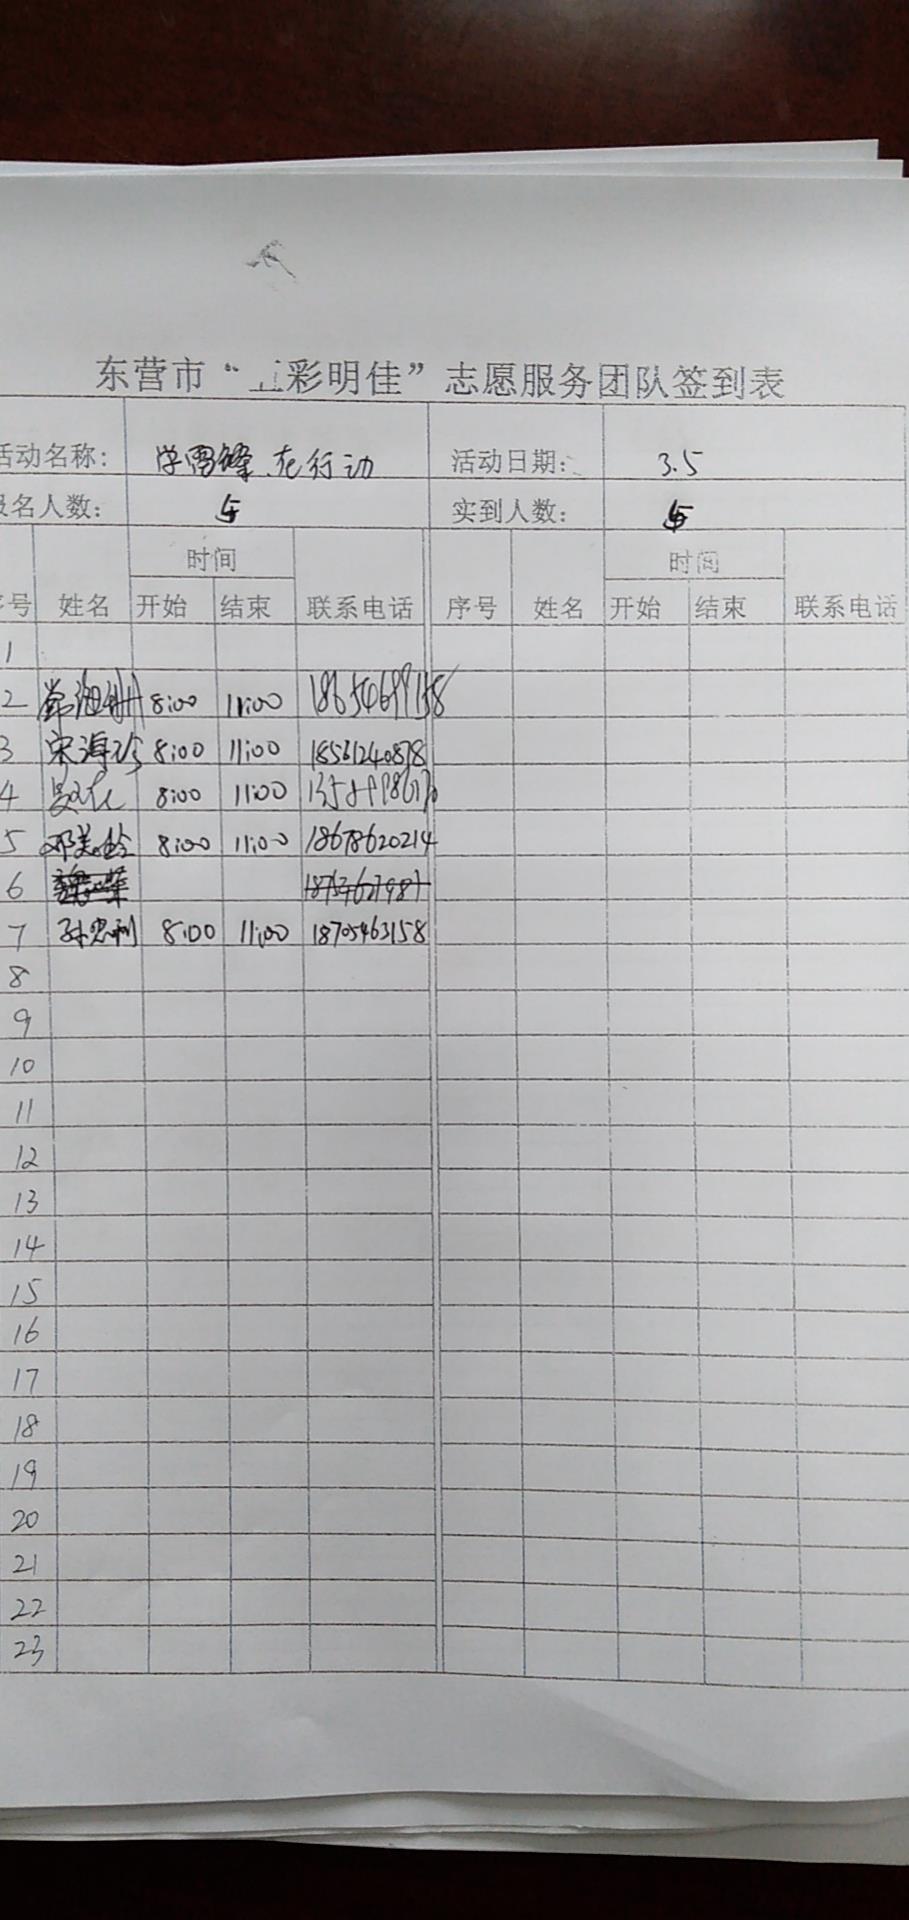 东营市“五彩明佳”志愿服务团队签到表
活动名称： 学雷锋 在行动 活动日期： 3.5
报名人数： 5 实到人数： 5
序号 姓名 时间 联系电话 序号 姓名 时间 联系电话
开始 结束 开始 结束
1
2 8:00 11:00
3 宋海珍 8:00 11:00 18561240878
4 8:00 11:00
5 邓美玲 8:00 11:00 18678620214
6
7 孙忠利 8:00 11:00 18705463158
8
9
10
11
12
13
14
15
16
17
18
19
20
21
22
23